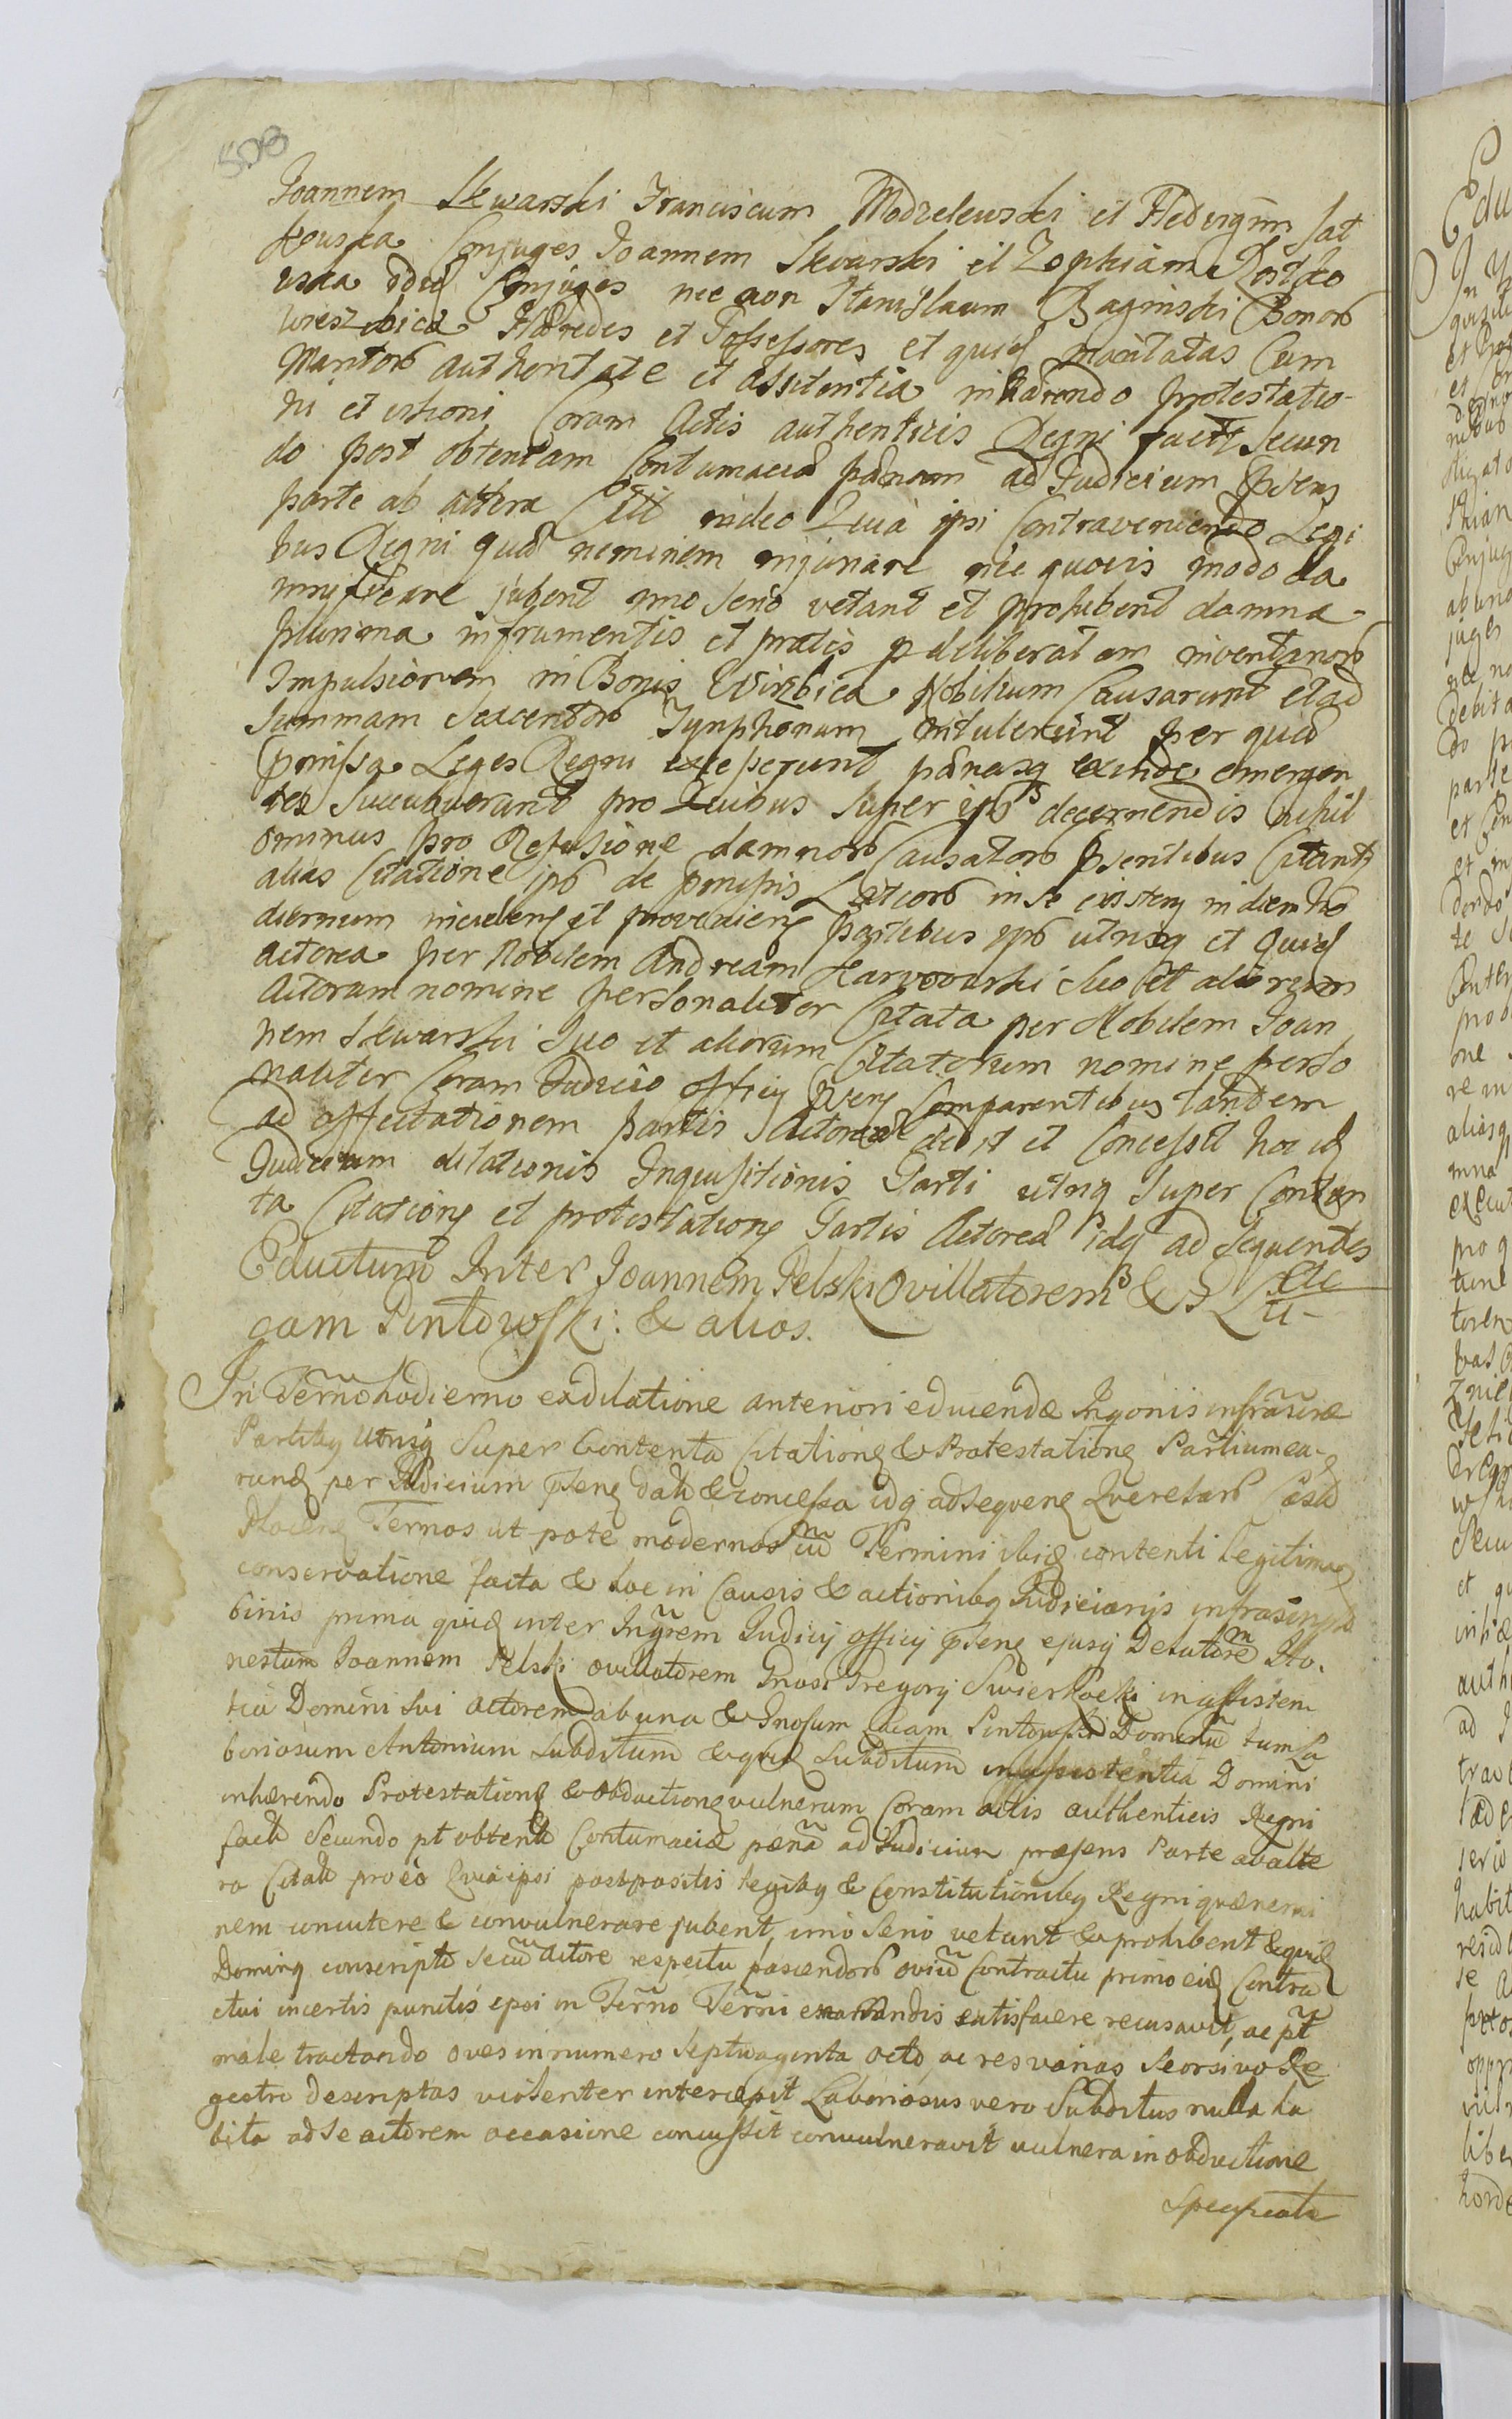 508
Joannem Skwarski Franciscum Modzelewski et Hedvigim Sat
kouska Conjuges Joannem Skwarski et Zophiam Kostko
uska Conjuges nec non Stanislaum Baginski Bonor
Hæredes et Possessores et quid maritatas Cum
Maritor authoritate et assitentia inhærendo protestatio-
ni et Coram Actis authenticis Regni factt Secun
do post obtentam Contumaciæ pænam ad Judicium
parte ab altera Citt ideo Quia ipsi Contraveniendo Legi
bus Regni quæ neminem injuriare nec quovis modo da
mnificare jubent imo serio vetant et prohibent damna
plurima in frumentis et pratis p deliberatam inventarior
Impulsionem in Bonis Wirzbica Nobilium Causarunt et ad
Summam Sexcentor Tynphonum intulerunt per quid
præmissa Leges Regni exceperunt pænasq exinde emergen
tes Succubuerunt pro Quibus super ipss decernendis nihil
ominus pro Refusione damnor Causator psentibus Citant
alias Citatione ips de pmissis Latior in se existen in diem ho
diernum inciden et provenien partibus ips utrisq et quid
actorea per Nobilem Andream Karwowski suo et aliorum
Actorum nomine personaliter Citata per Nobilem Joan
nem Skwarski Suo et aliorum Citatorum nomine perso
naliter Coram Judicio officij psen Comparentibus tandem
ad affectationem partis Actoreæ dedit et Concessit hoc id
Judicium dilationis Inquisitionis Parti utriq super Conten
ta Citationis et protestationis Partis Actoreæ idq ad sequentes
Etc
Eductum Inter Joannem Pelski Ovillatorem & Lu-
cam Pintowski: & alios.
In Termo hodierno ex dilatione anteriori educendæ Inqonis infrascræ
Partibq utrisq Super Contenta Citationis & Protestationis Partium ea-
rund per Judicium psens datæ & concessa idq ad sequene Querelar Castr
Plocens Termos ut pote modernos cū Termini ibid contenti legitima
conservatione facta & hoc in Causis & actionibq Judiciarijs infrascript
binis prima quid inter Ingrem Judicij officij psens ejusq Delatorem Ho-
nestum Joannem Pelski ovillatorem Gnosi Gregorij Swierkocki in assisten
tia Domini sui actorem ab una & Gnosum Lucam Pintowski Dominū tum La
boriosum Antonium Subditum & quid Subditum in assistentia Domini
inhærendo Protestationis & obductionis vulnerum Coram actis authenticis Regni
factæ Secundo pt obtentæ Contumaciæ pænā ad Judicium præsens Parte ab alte
ra Citatt pro eo Quia ipsi postpositis legibq & Constitutionibq Regni quæ nemi
nem concutere & convulnerare jubent, imo serio vetant & prohibent & quid
Dominq conscripto secū actore respectu pascendor oviū Contractu primo eid Contra
ctui in certis punctis ipsi in Termo Termi enarrandis satisfacere recusavit, ac pt
male tractando oves in numero Septuaginta octo, ac res varias Seorsivo Re
gestro descriptas violenter intercepit Laboriosus vero Subditus nulla ha
bita ad se actorem occasione concussit convulneravit vulnera in obductione
Specificata